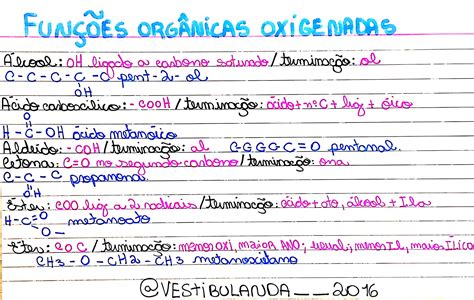 FUNÇÕES ORGÂNICAS OXIGENADAS
Álcool: OH ligado a carbono saturado/terminação: ol
C-C-C-C-C pent-2-ol
OH
Ácido carboxílico: -COOH/terminação: ácido+nºC+lig+óico
O
H-C-OH ácido metanóico
Aldeído: -COH/terminação: al C-C-C-C-C=O pentanal.
Cetona: C=O no segundo carbono/terminação: ona
C-C-C propanona
Éster: COO lig a 2 radicais/terminação: ácido+ato, álcool+Ila
H-C=O metanoato
O-
Éter: COC/terminação: menor OXI, maior ANO; usual; menor Il, maior Ílico
CH3-O-CH2-CH3 metanoxietano
@VESTIBULANDA__2016